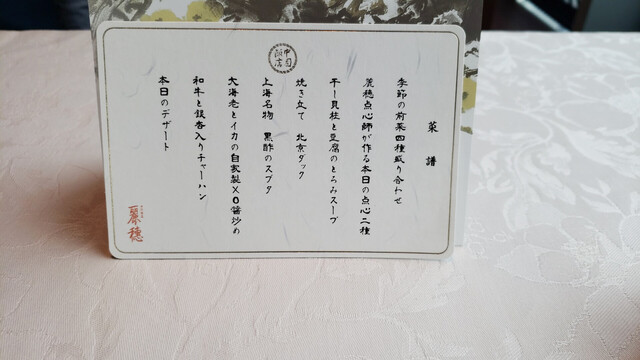 中国飯店
菜譜
季節の前菜四種盛り合わせ
麗穂点心師が作る本日の点心二種
干し貝柱と豆腐のとろみスープ
焼き立て 北京ダック
上海名物 黒酢のスブタ
大海老とイカの自家製XO醤炒め
和牛と銀杏入りチャーハン
本日のデザート
麗穂